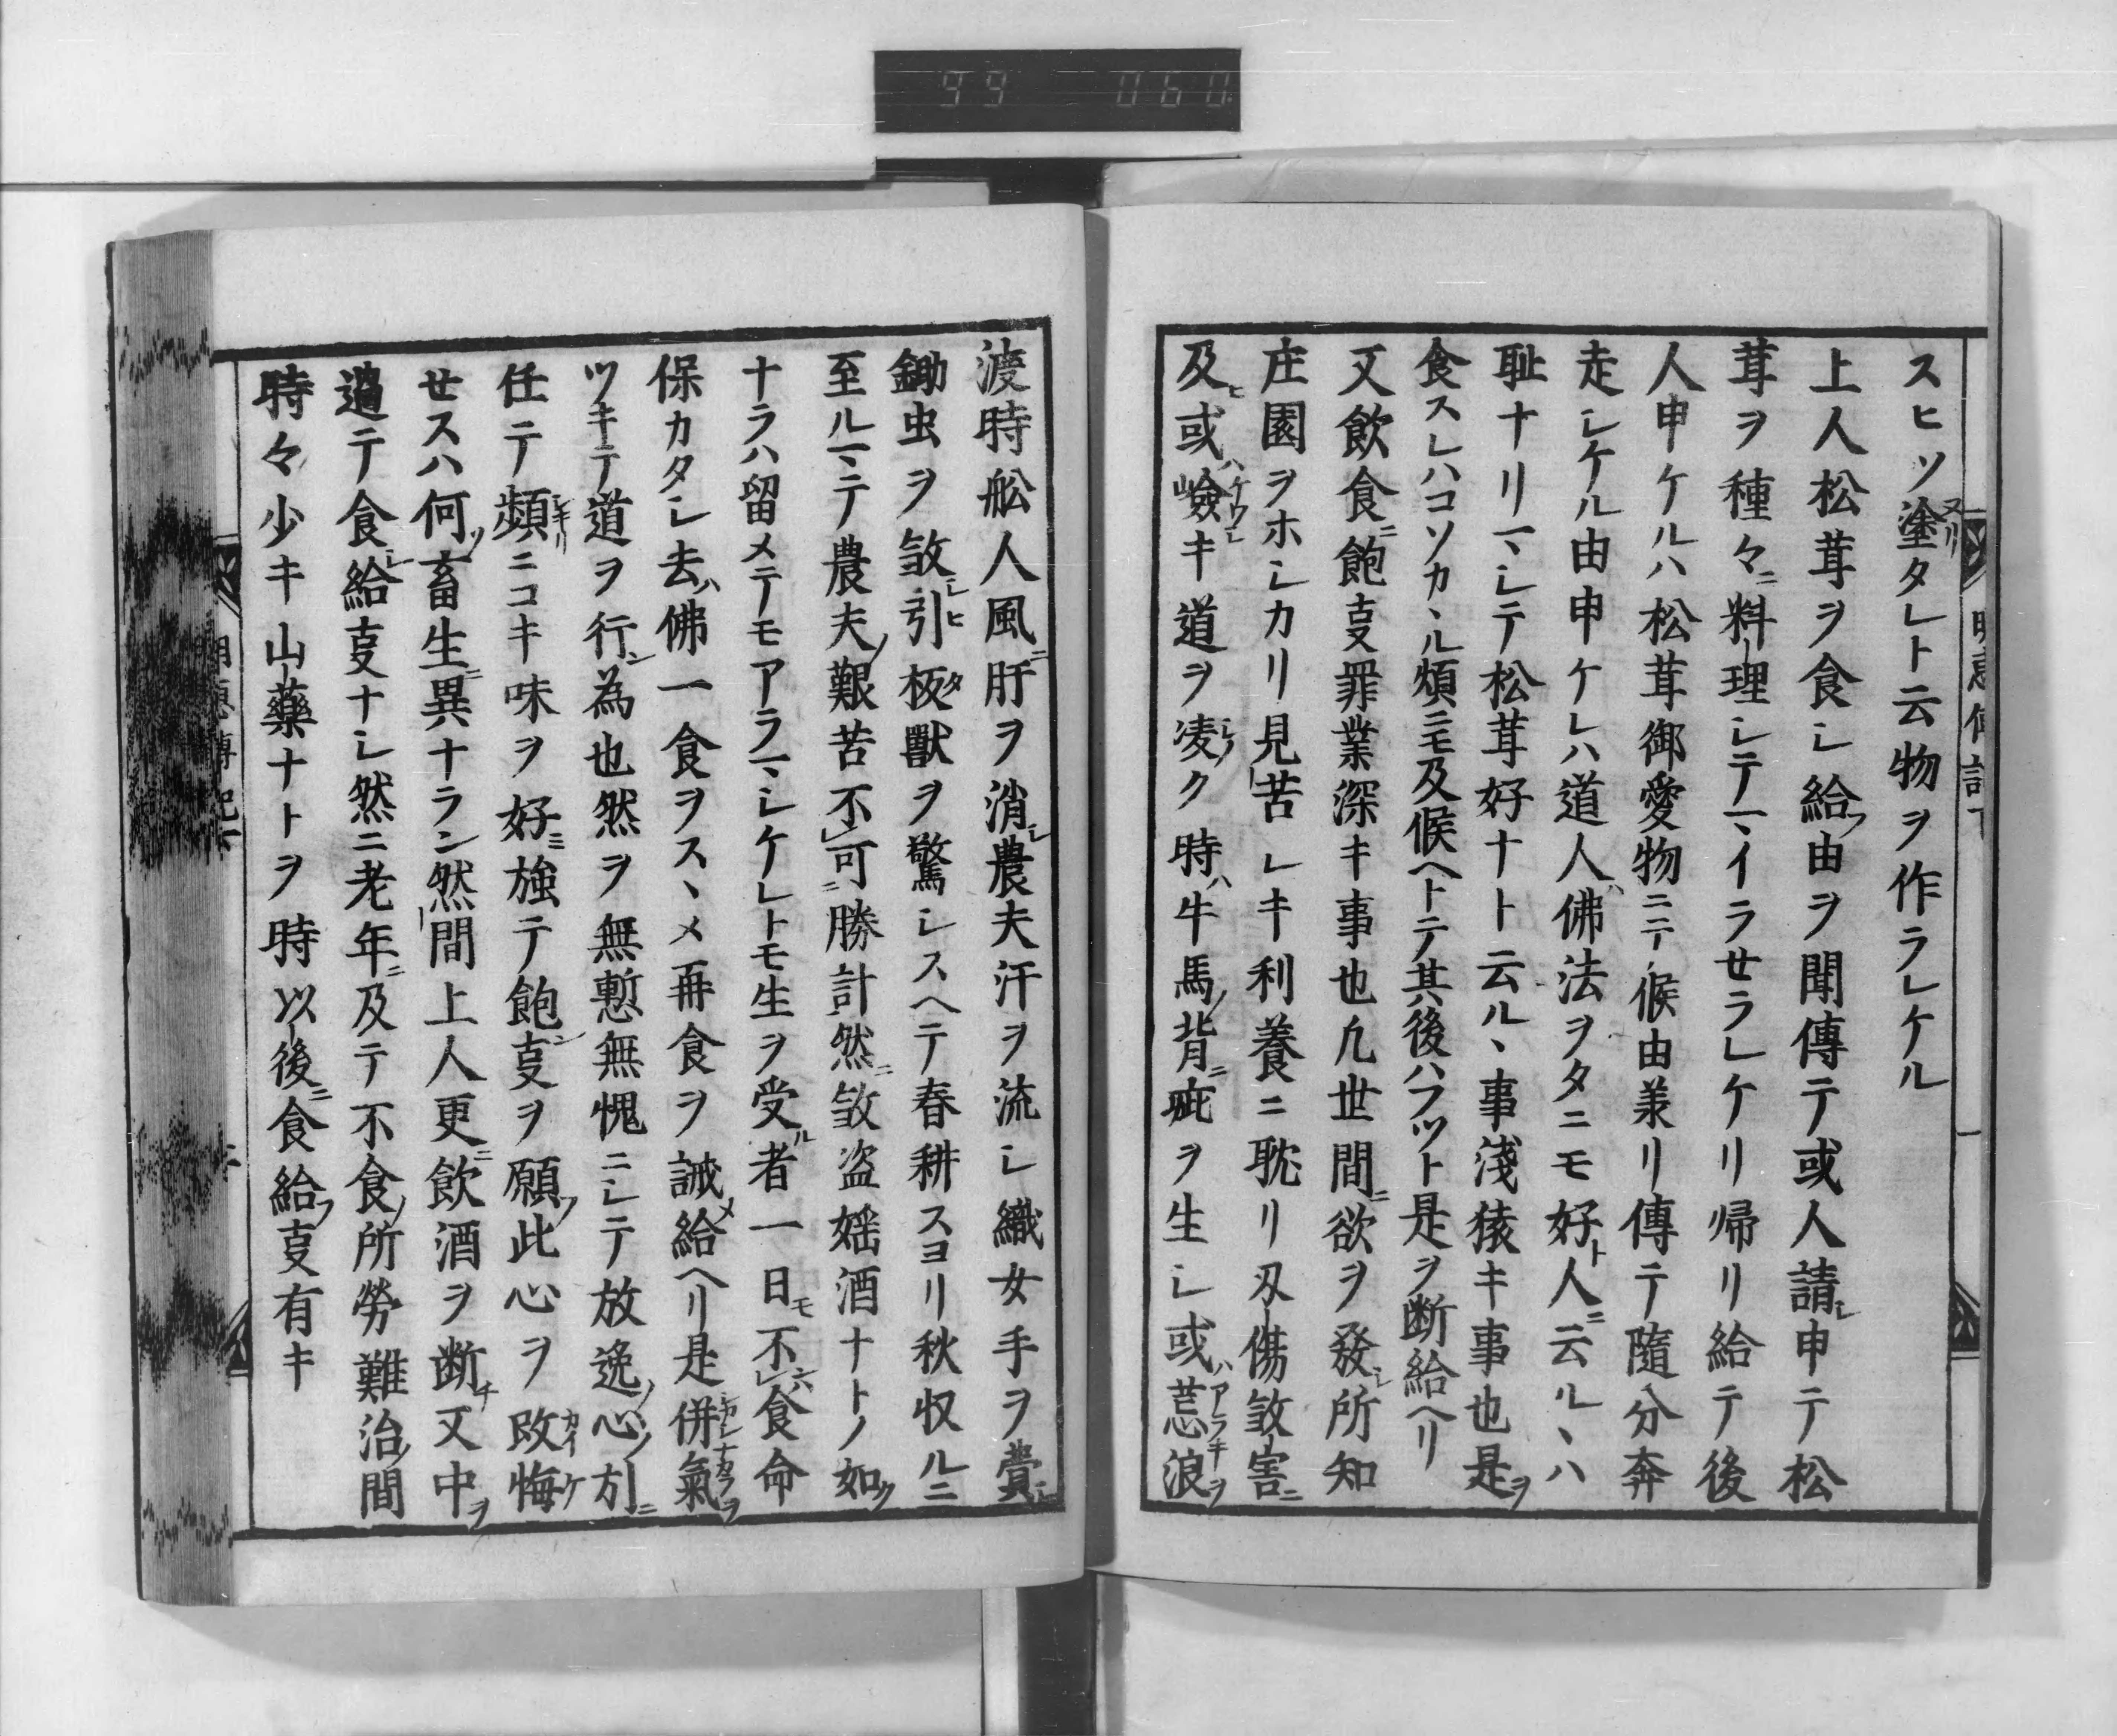 99 060
スヒソ塗タレト云物ヲ作ラレケル
上人松茸ヲ食シ給フ由ヲ聞傳テ或人請シ申テ松
茸ヲ種々ニ料理シテマヽイラセラレケリ帰リ給テ後
人申ケルハ松茸御愛物ニテ候由羕リ傳テ隨分奔
走シケル由申ケレハ道人ハ佛法ヲタニモ好ト人ニ云ルヽハ
耻ナリマヽシテ松茸好ナト云ルヽ事淺猿キ事也是ヲ
食スレハコソカヽル煩ニモ及候ヘトテ其後ハフツト是ヲ断給ヘリ
又飲食ニ飽叓罪業深キ事也凢世間ニ欲ヲ發シ所知
庄園ヲホシカリ見苦レキ利養ニ耽リ刄傷敓害ニ
及ヒ或ハ嶮キ道ヲ凌ク時ハ牛馬ノ背ニ疵ヲ生シ或ハ荒浪ヲ
渡時舩人風ニ肝ヲ消シ農夫汗ヲ流シ織女手ヲ費シ
鋤虫ヲ敓シ引板獸ヲ驚シスヘテ春耕スヨリ秋収ルニ
至ルマヽテ農夫ノ艱苦不可勝計然ニ敓盗婬酒ナトノ如ク
ナラハ留メテモアラマヽシケレトモ生ヲ受ル者一日モ不食命
保カタシ去ハ佛一食ヲスヽメ再食ヲ誡メ給ヘリ是併氣ヲ
ツキテ道ヲ行ン為也然ヲ無慙無愧ニシテ放逸ノ心ノ引ニ
任テ頻ニコキ味ヲ好ミ強テ飽ン叓ヲ願フ此心ヲ改悔
セスハ何ソ畜生ニ異ナラン然間上人更ニ飲酒ヲ断チ又中ヲ
過テ食シ給叓ナシ然ニ老年ニ及テ不食ノ所勞難治ノ間
時々少キ山藥ナトヲ時以後ニ食給フ叓有キ